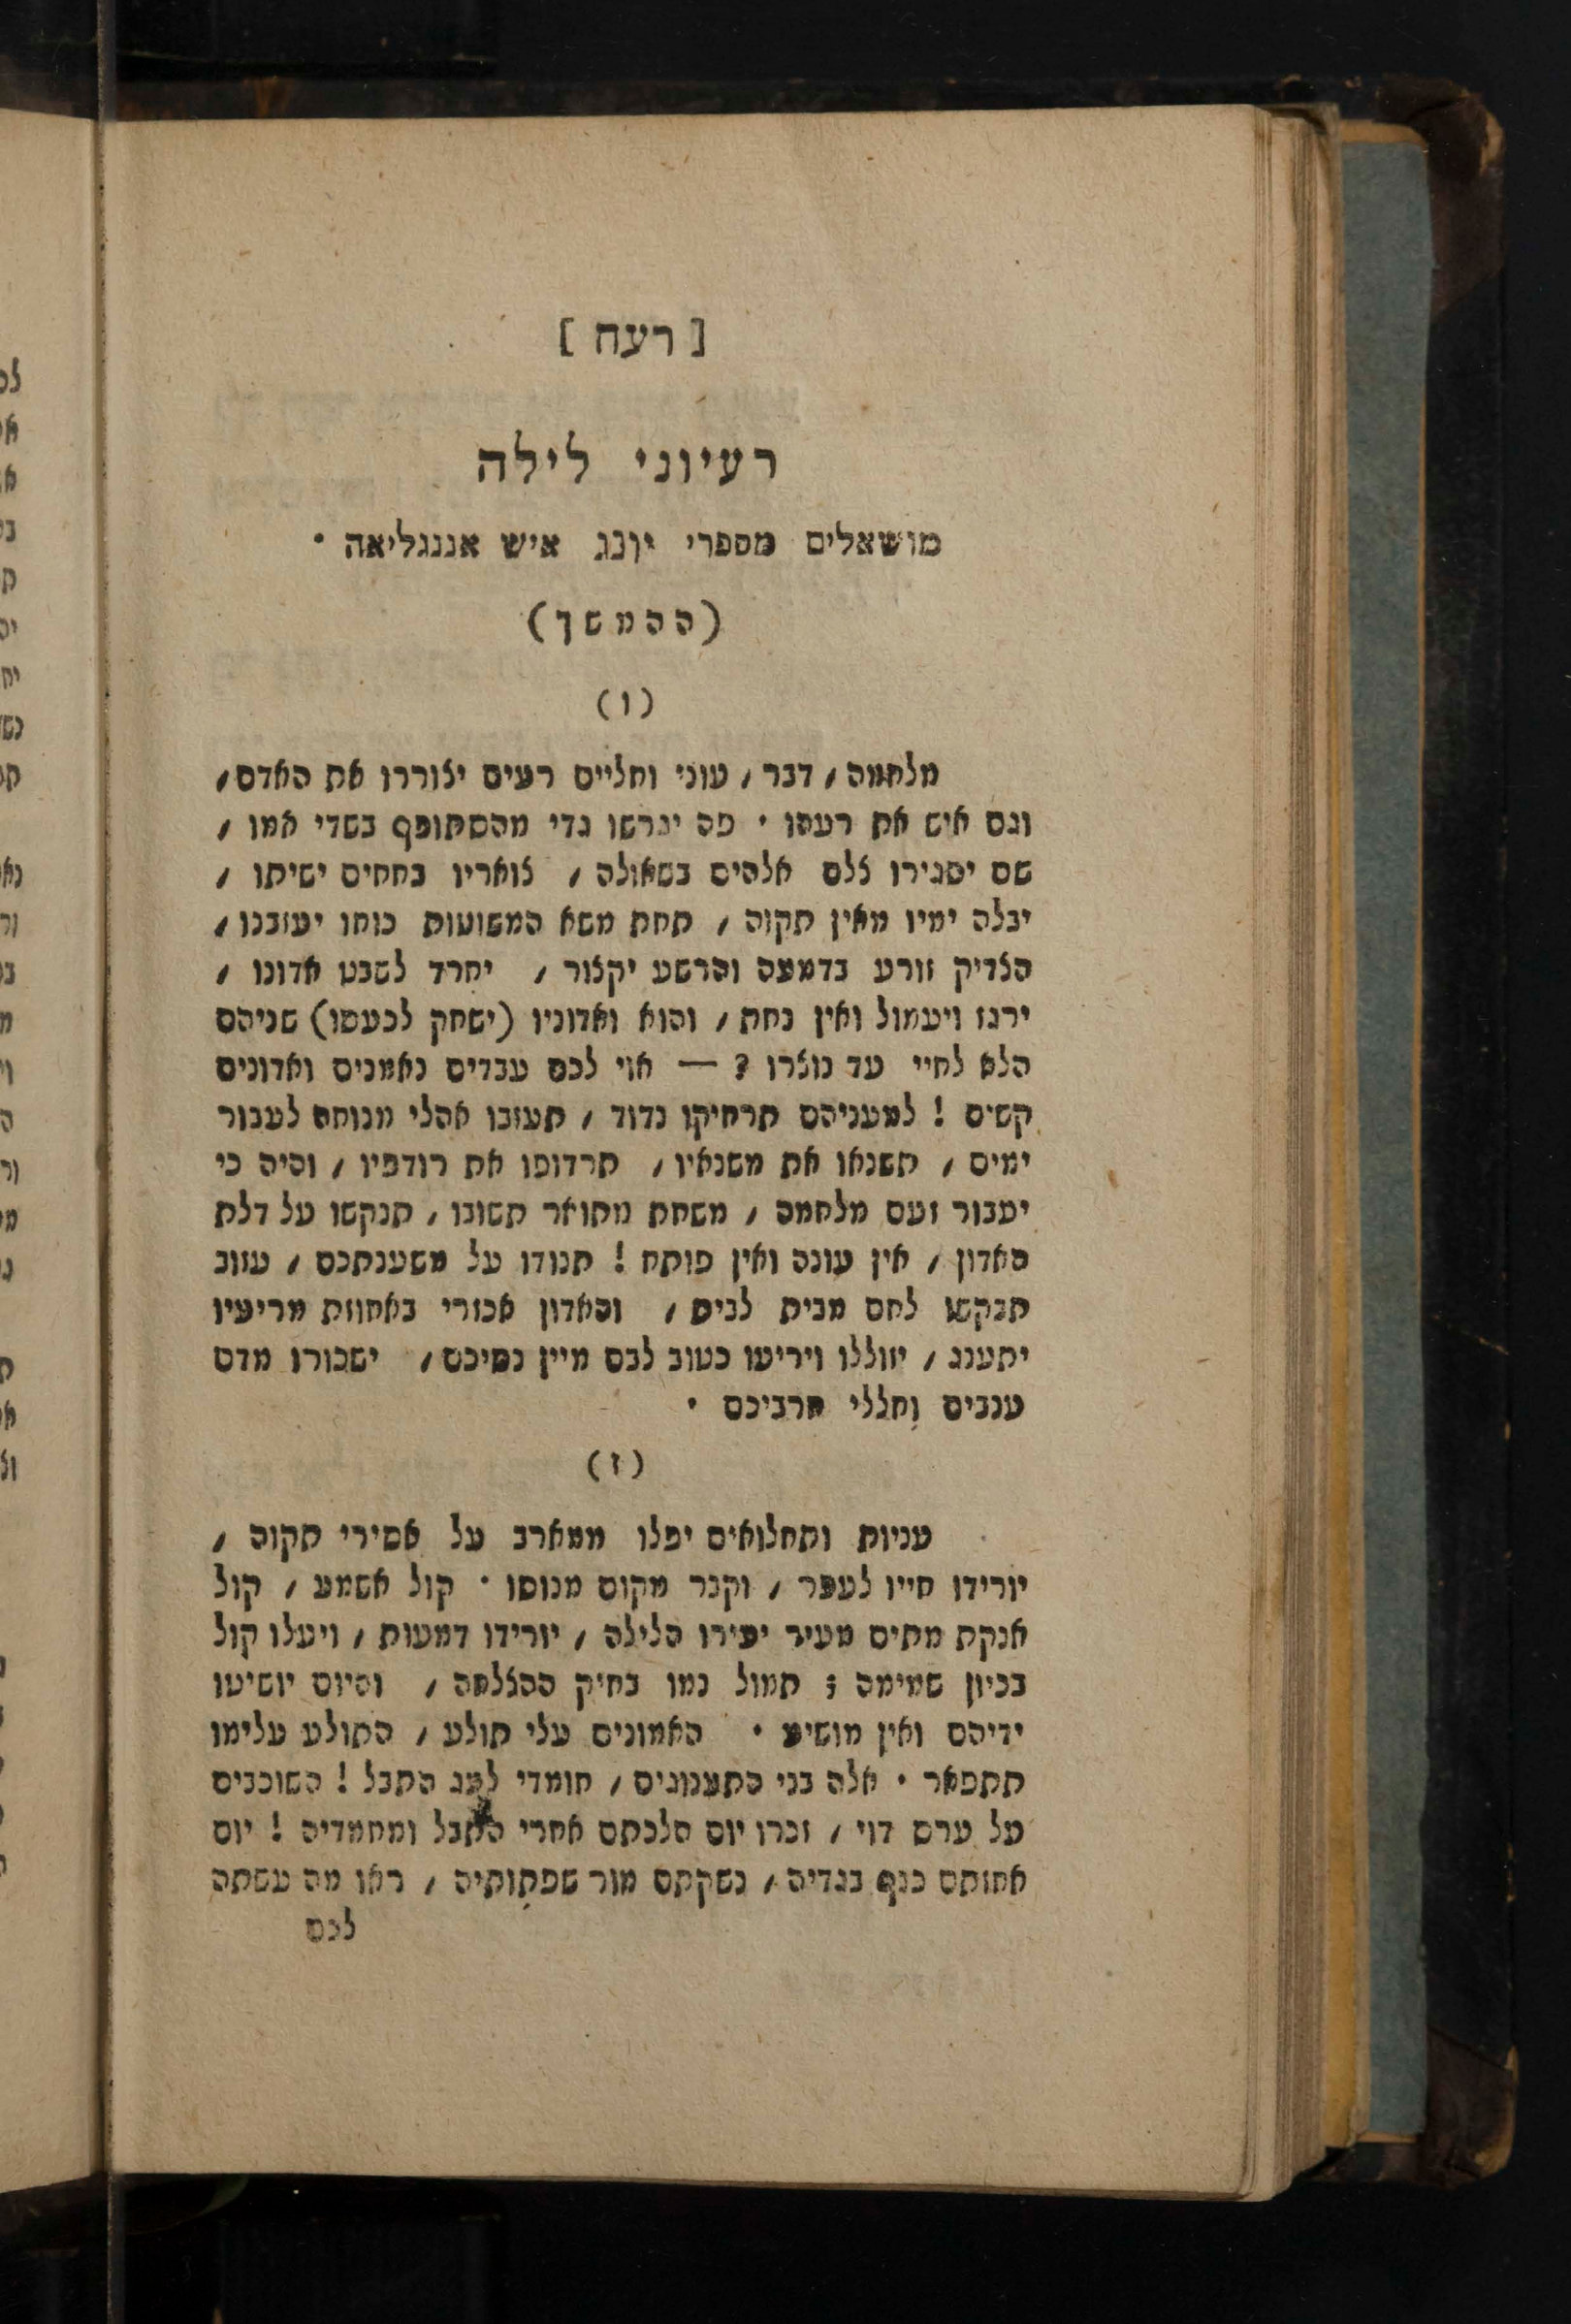 [ רעח ]
רעיוני לילה
מושאלים מספרי יונג איש אננגליאה ·
(ההמשך)
(ו)
מלחמה, דבר, עוני וחליים רעים יצוררו את האדם,
וגם איש את רעהו · פה יגרשו גדי מהסתופף בשדי אמו,
שם יסגירו צלם אלהים בשאולה, צואריו בחחים ישיתו,
יבלה ימיו מאין תקוה, תחת משא המשועות כוחו יעזבנו,
הצדיק זורע בדמעה והרשע יקצור, יחרד לשבט אדונו,
ירגז ויעמול ואין נחת, והוא ואדוניו (ישחק לכעסו) שניהם
הלא לחיי עד נוצרו ? — אוי לכם עבדים נאמנים ואדונים
קשים ! למעניהם תרחיקו נדוד, תעזבו אהלי מנוחה לעבור
ימים, תשנאו את משנאיו, תרדופו את רודפיו, והיה כי
יעבור זעם מלחמה, משחת מתואר תשובו, תנקשו על דלת
האדון, אין עונה ואין פותח ! תנודו על משענתכם, עזוב
תבקשו לחם מבית לבית, והאדון אכזרי באחוזת מריעיו
יתענג, יזוללו ויריעו כטוב לבם מיין נסיכם, ישכורו מדם
ענבים וחללי חרביכם ·
(ז)
עניות ותחלואים יפלו ממארב על אסירי תקוה,
יורידו חייו לעפר, וקבר מקום מנוסו · קול אשמע, קול
אנקת מתים מעיר יעירו הלילה, יורידו דמעות, ויעלו קול
בכיון שמימה ; תמול נמו בחיק ההצלחה, והיום יושיטו
ידיהם ואין מושיע · האמונים עלי תולע, התולע עלימו
תתפאר · אלה בני התענוגים, חומדי לעג התבל ! השוכבים
על ערש דוי, זכרו יום הלכתם אחרי התבל ומחמדיה ! יום
אחזתם כנף בגדיה, נשקתם מור שפתותיה, ראו מה עשתה
לכם